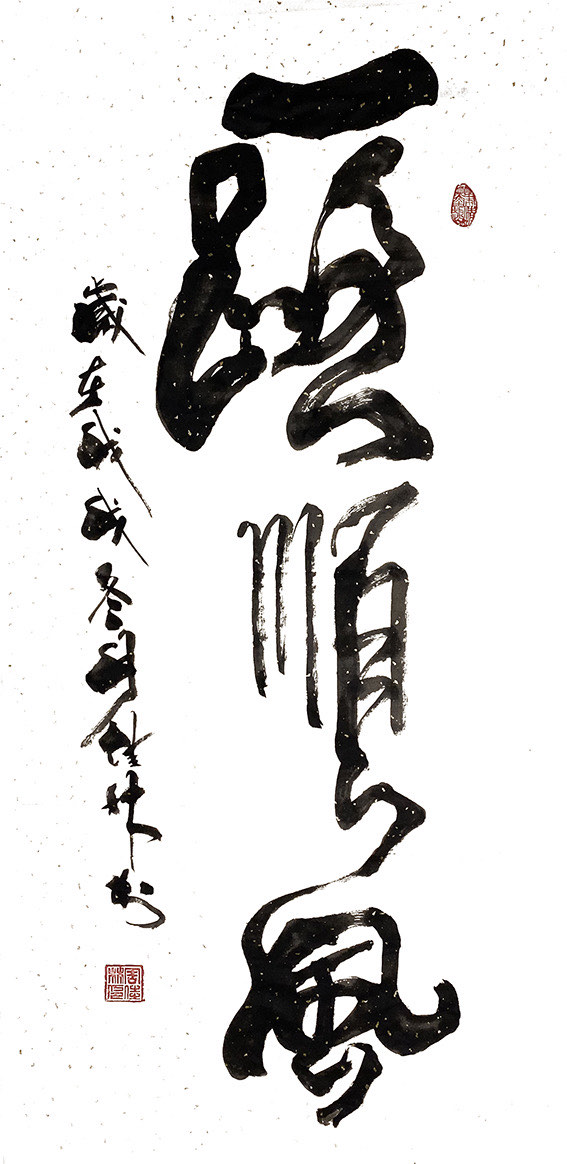 一路順風
歲在戊戌冬